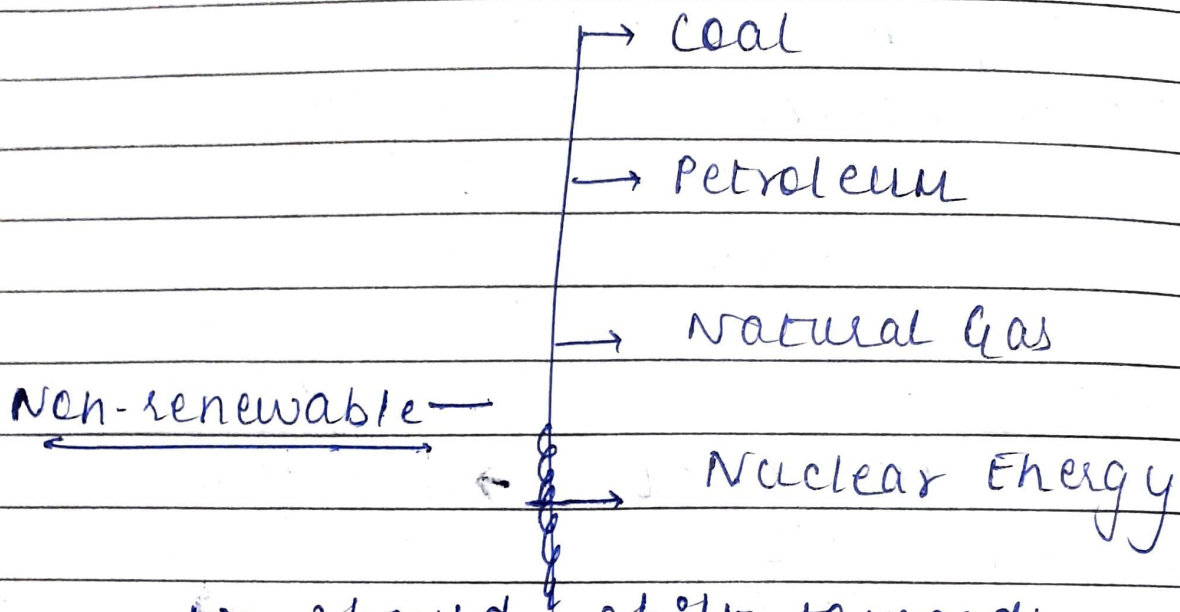 → Coal
→ Petroleum
→ Natural Gas
Non-renewable —
→ Nuclear Energy